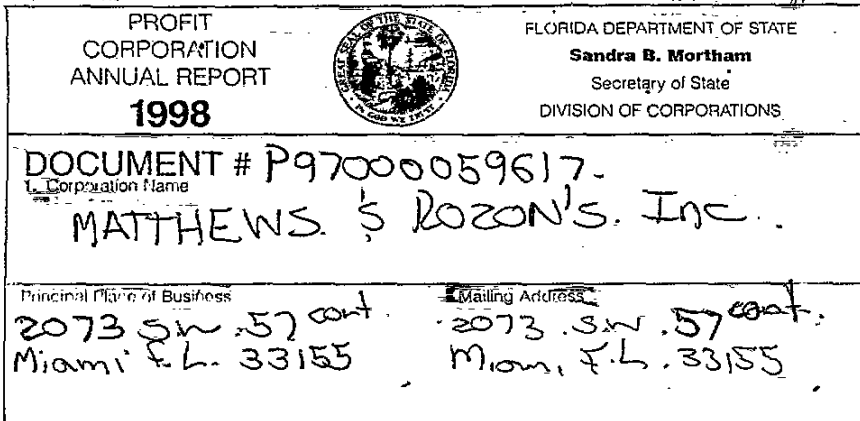 PROFIT
CORPORATION
ANNUAL REPORT
1998
GREAT SEAL OF THE STATE OF FLORIDA
IN GOD WE TRUST
FLORIDA DEPARTMENT OF STATE
Sandra B. Mortham
Secretary of State
DIVISION OF CORPORATIONS
DOCUMENT # P97000059617.
1. Corporation Name
MATTHEWS. & ROZON'S. Inc.
Principal Place of Business
2073 SW .57 court.
Miami F.L. 33155
Mailing Address
2073 .S.W .57 court.
Miami, F.L. 33155